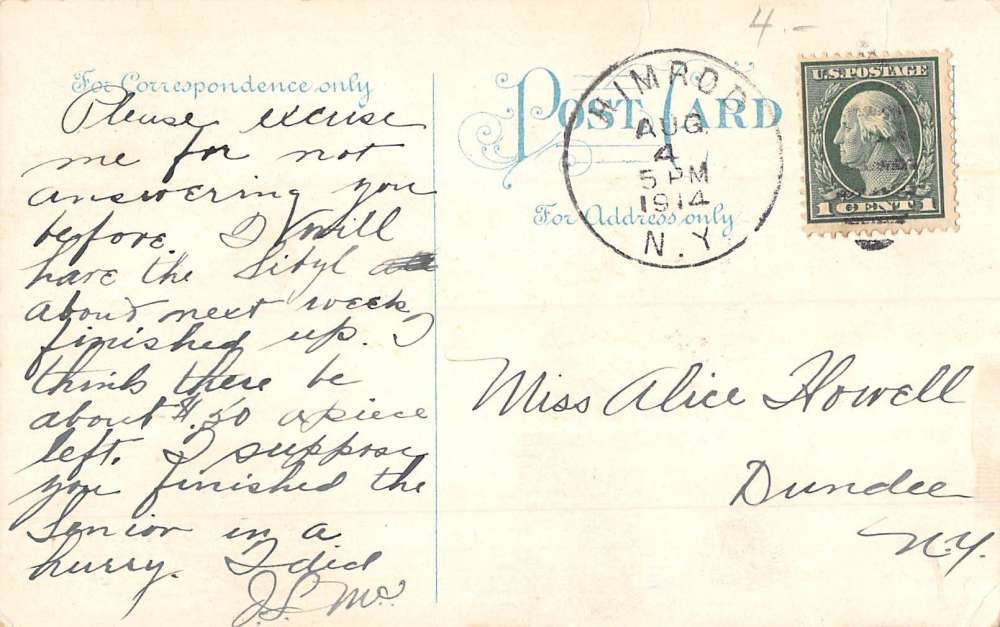 4.-
For Correspondence only
Please excuse
me for not
answering you
before. I will
have the Sibyl
about next week
finished up. I
think there be
about $.50 apiece
left. I suppose
you finished the
Senior in a
hurry. I did
J.S. Mc.
POST CARD
For Address only
NIMROD
AUG
4
5 PM
1914
N.Y.
U.S. POSTAGE
1 CENT 1
Miss Alice Howell
Dundee
N.Y.